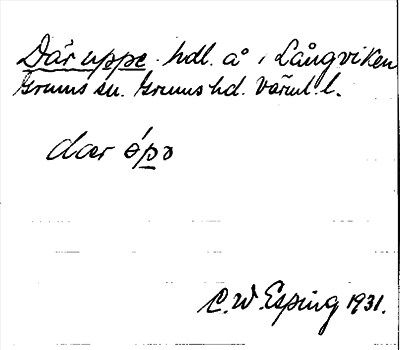 Där uppe hdl. å i Långviken
Grums sn. Grums hd. Värml. l.
dær ópə
C.W. Esping 1931.